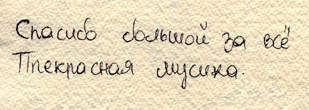 Спасибо большой за всё
Ппекрасная музика.